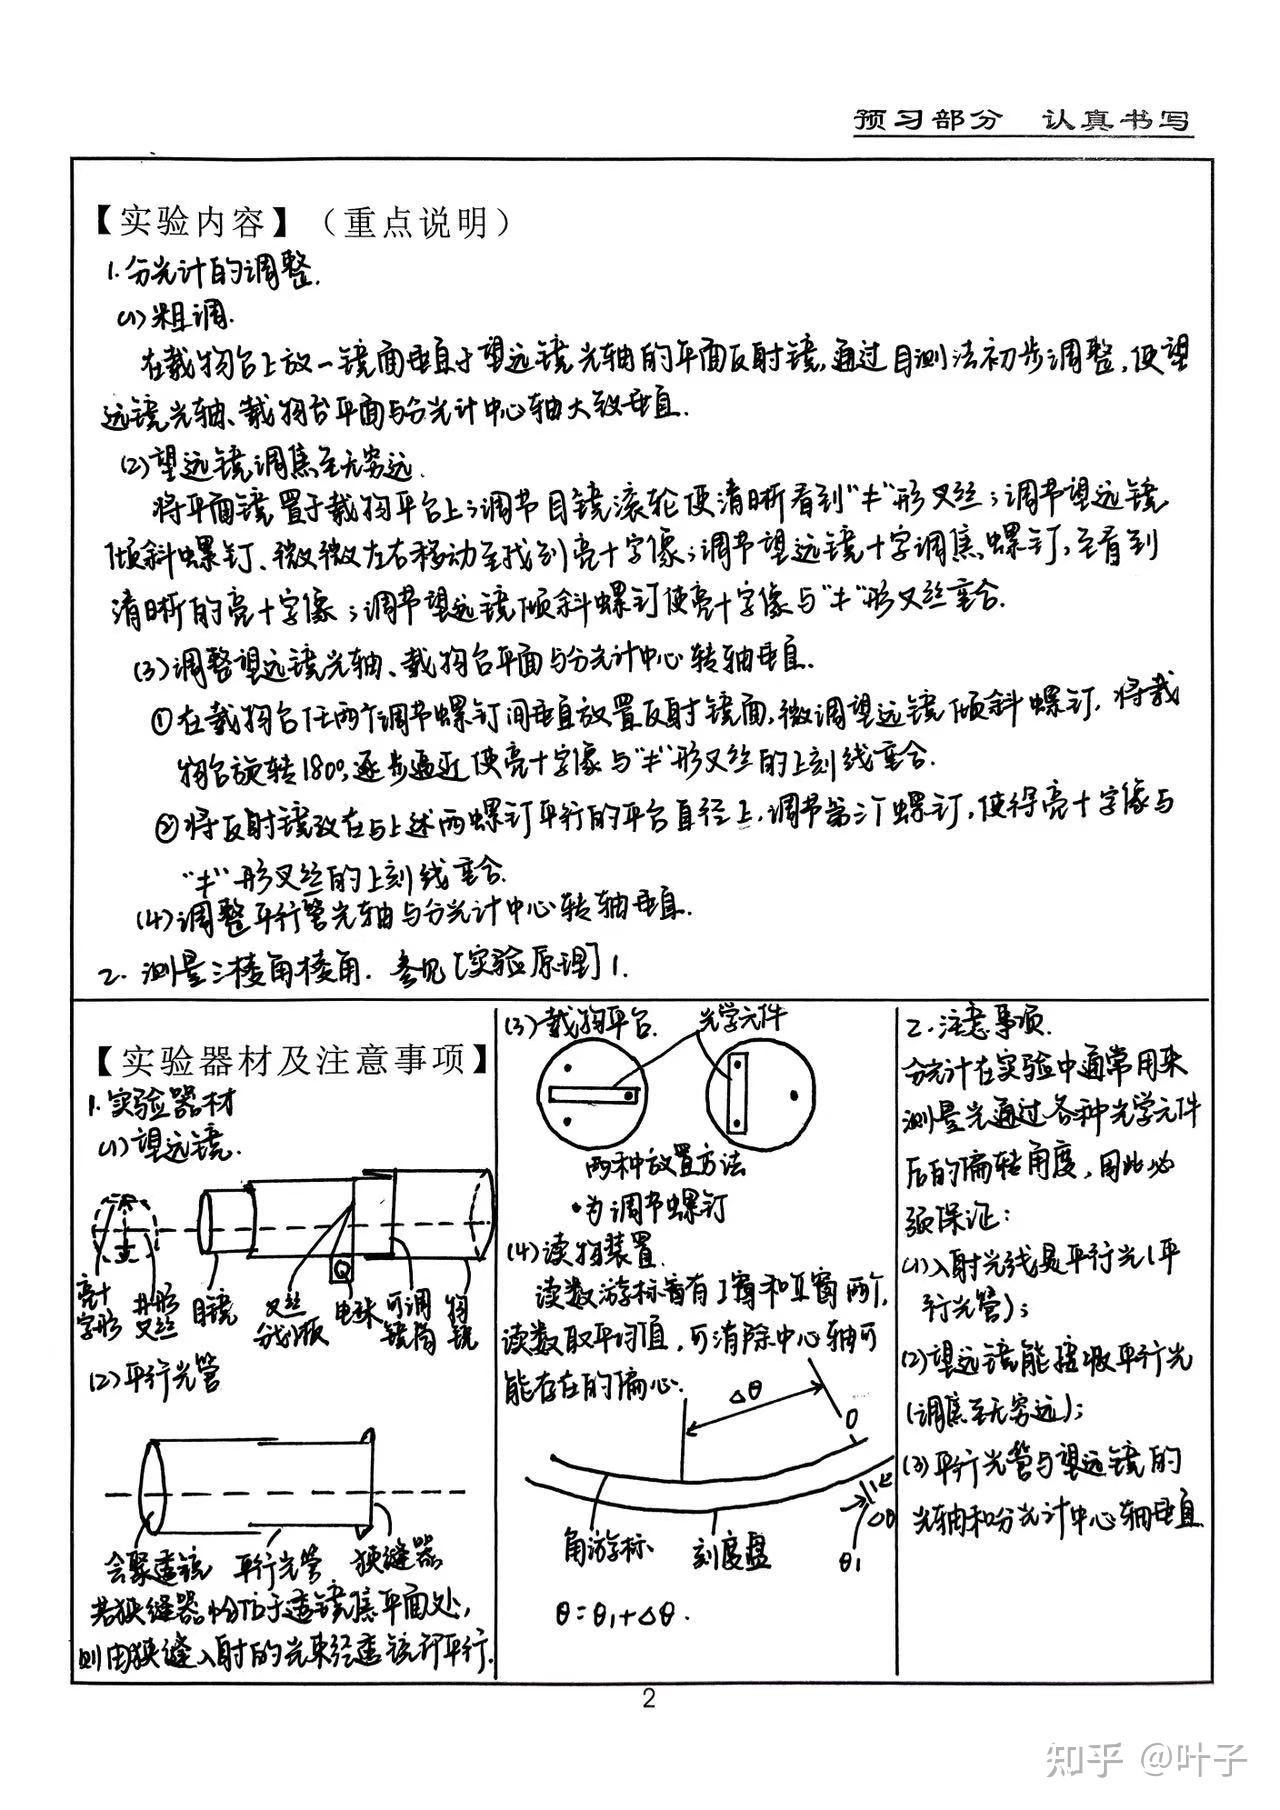 预习部分 认真书写
【实验内容】（重点说明）
1.分光计的调整.
(1)粗调.
在载物台上放一镜面垂直于望远镜光轴的平面反射镜,通过目测法初步调整,使望
远镜光轴、载物台平面与分光计中心轴大致垂直.
(2)望远镜调焦至无穷远.
将平面镜置于载物平台上;调节目镜滚轮使清晰看到"丰"形叉丝;调节望远镜
倾斜螺钉、微微左右移动至找到亮十字像;调节望远镜十字调焦螺钉,至看到
清晰的亮十字像;调节望远镜倾斜螺钉使亮十字像与"丰"形叉丝重合.
(3)调整望远镜光轴、载物台平面与分光计中心转轴垂直.
①在载物台任两个调节螺钉间垂直放置反射镜面,微调望远镜倾斜螺钉.将载
物台旋转180°,逐步逼近使亮十字像与"丰"形叉丝的上刻线重合.
②将反射镜放在与上述两螺钉平行的平台直径上,调节第三个螺钉,使得亮十字像与
"丰"形叉丝的上刻线重合.
(4)调整平行管光轴与分光计中心转轴垂直.
2. 测量三棱角棱角. 参见[实验原理]1.
【实验器材及注意事项】
1.实验器材
(1)望远镜.
亮十字形
井形叉丝
目镜
叉丝分划板
电珠
可调镜筒
物镜
(2)平行光管
会聚透镜 平行光管 狭缝器
若狭缝器恰位于透镜焦平面处,
则由狭缝入射的光束经透镜即平行.
(3)载物平台.
光学元件
两种放置方法
·为调节螺钉
(4)读物装置.
读数游标盘有I窗和II窗两个,
读数取平均值,可消除中心轴可
能存在的偏心.
Δθ
0
Δθ
θ₁
角游标 刻度盘
θ=θ₁+Δθ.
2.注意事项.
分光计在实验中通常用来
测量光通过各种光学元件
后的偏转角度,因此必
须保证:
(1)入射光线是平行光(平
行光管);
(2)望远镜能接收平行光
(调焦至无穷远);
(3)平行光管与望远镜的
光轴和分光计中心轴垂直
2
知乎 @叶子